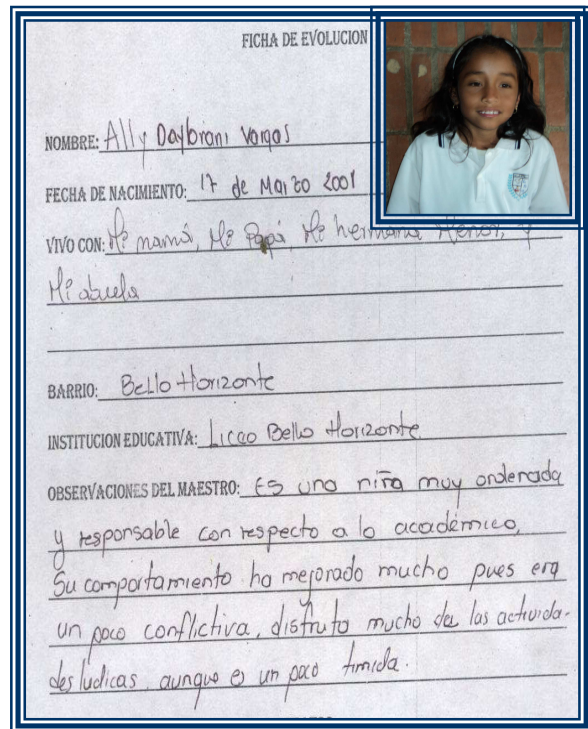 FICHA DE EVOLUCION
NOMBRE: Ally Daybrani Vargas
FECHA DE NACIMIENTO: 17 de Marzo 2001
VIVO CON: Mi mamá, Mi Papá, Mi hermana Menor, y
Mi abuela
BARRIO: Bello Horizonte
INSTITUCION EDUCATIVA: Liceo Bello Horizonte
OBSERVACIONES DEL MAESTRO: Es una niña muy ordenada
y responsable con respecto a lo académico,
Su comportamiento ha mejorado mucho pues era
un poco conflictiva, disfruta mucho de las activida-
des ludicas aunque es un poco timida.